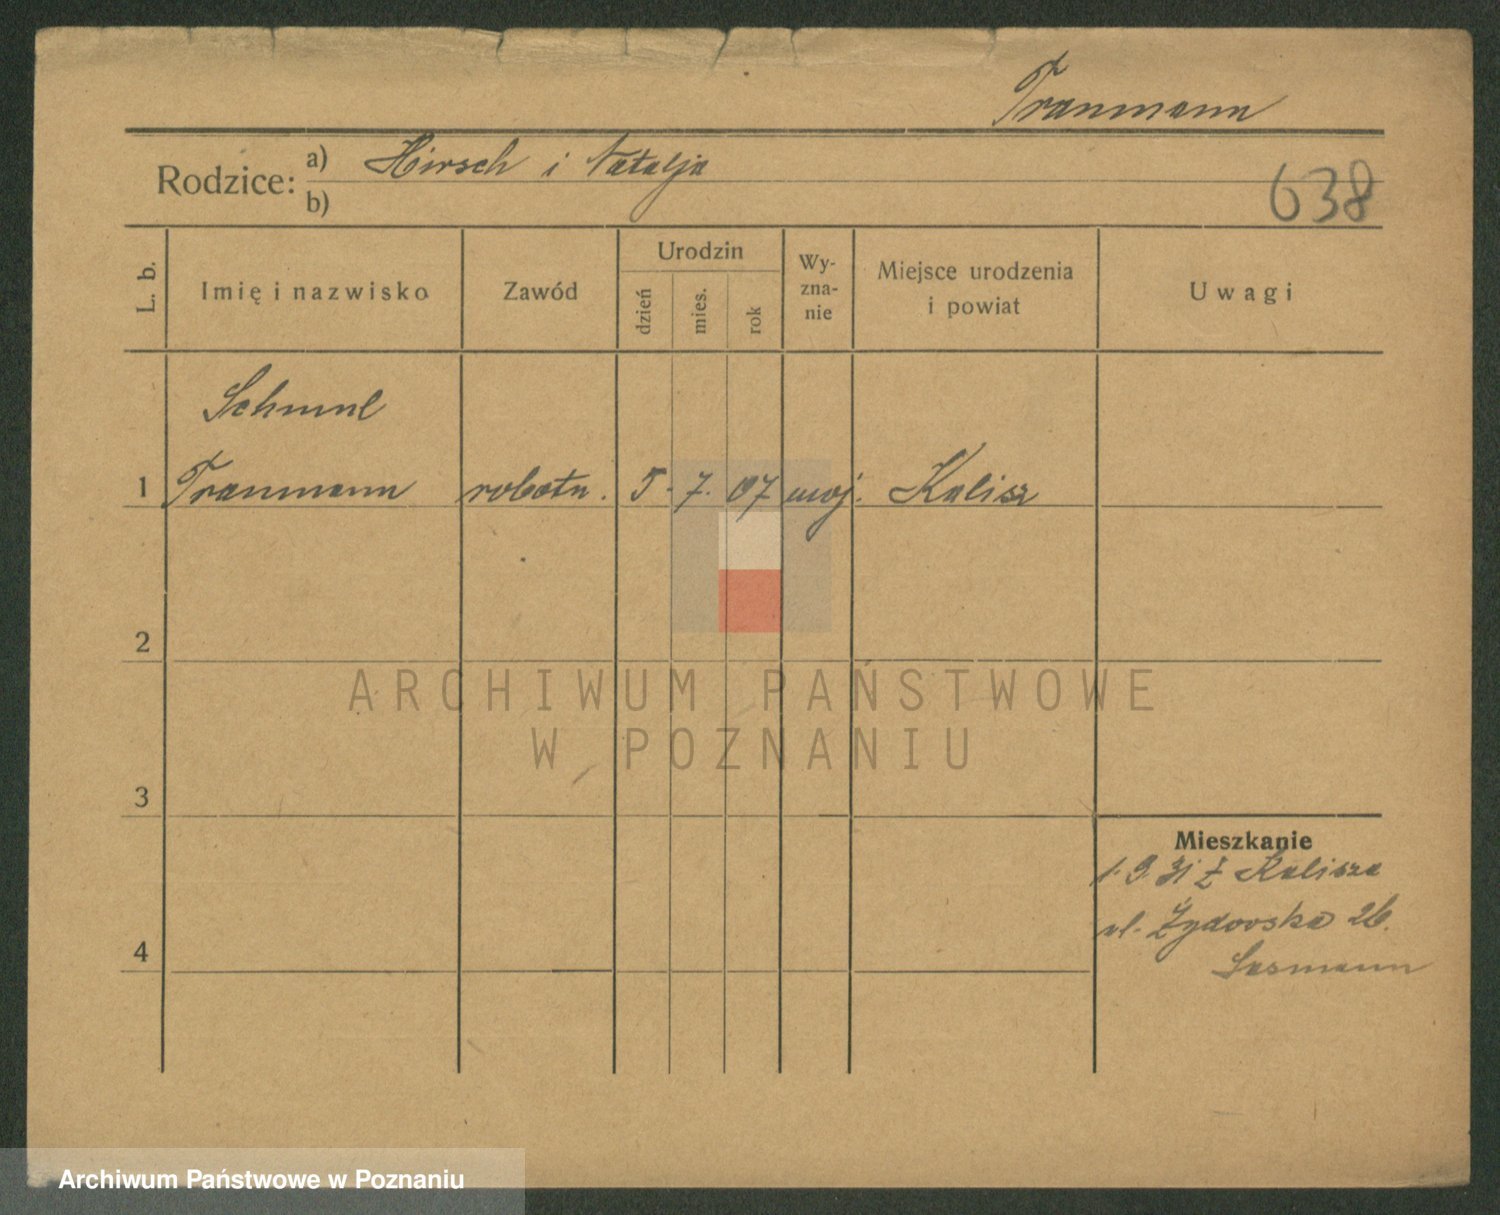 Tranmann
Rodzice: a) Hirsch i Natalja
b)
638
L. b.
Imię i nazwisko
Zawód
Urodzin
dzień
mies.
rok
Wy-
zna-
nie
Miejsce urodzenia
i powiat
Uwagi
Schmul
1 Tranmann robotn. 5. 7. 07 moj. Kalisz
2
ARCHIWUM PAŃSTWOWE
W POZNANIU
3
Mieszkanie
1. 9. 31 z Kalisza
ul. Żydowska 26.
4
Archiwum Państwowe w Poznaniu